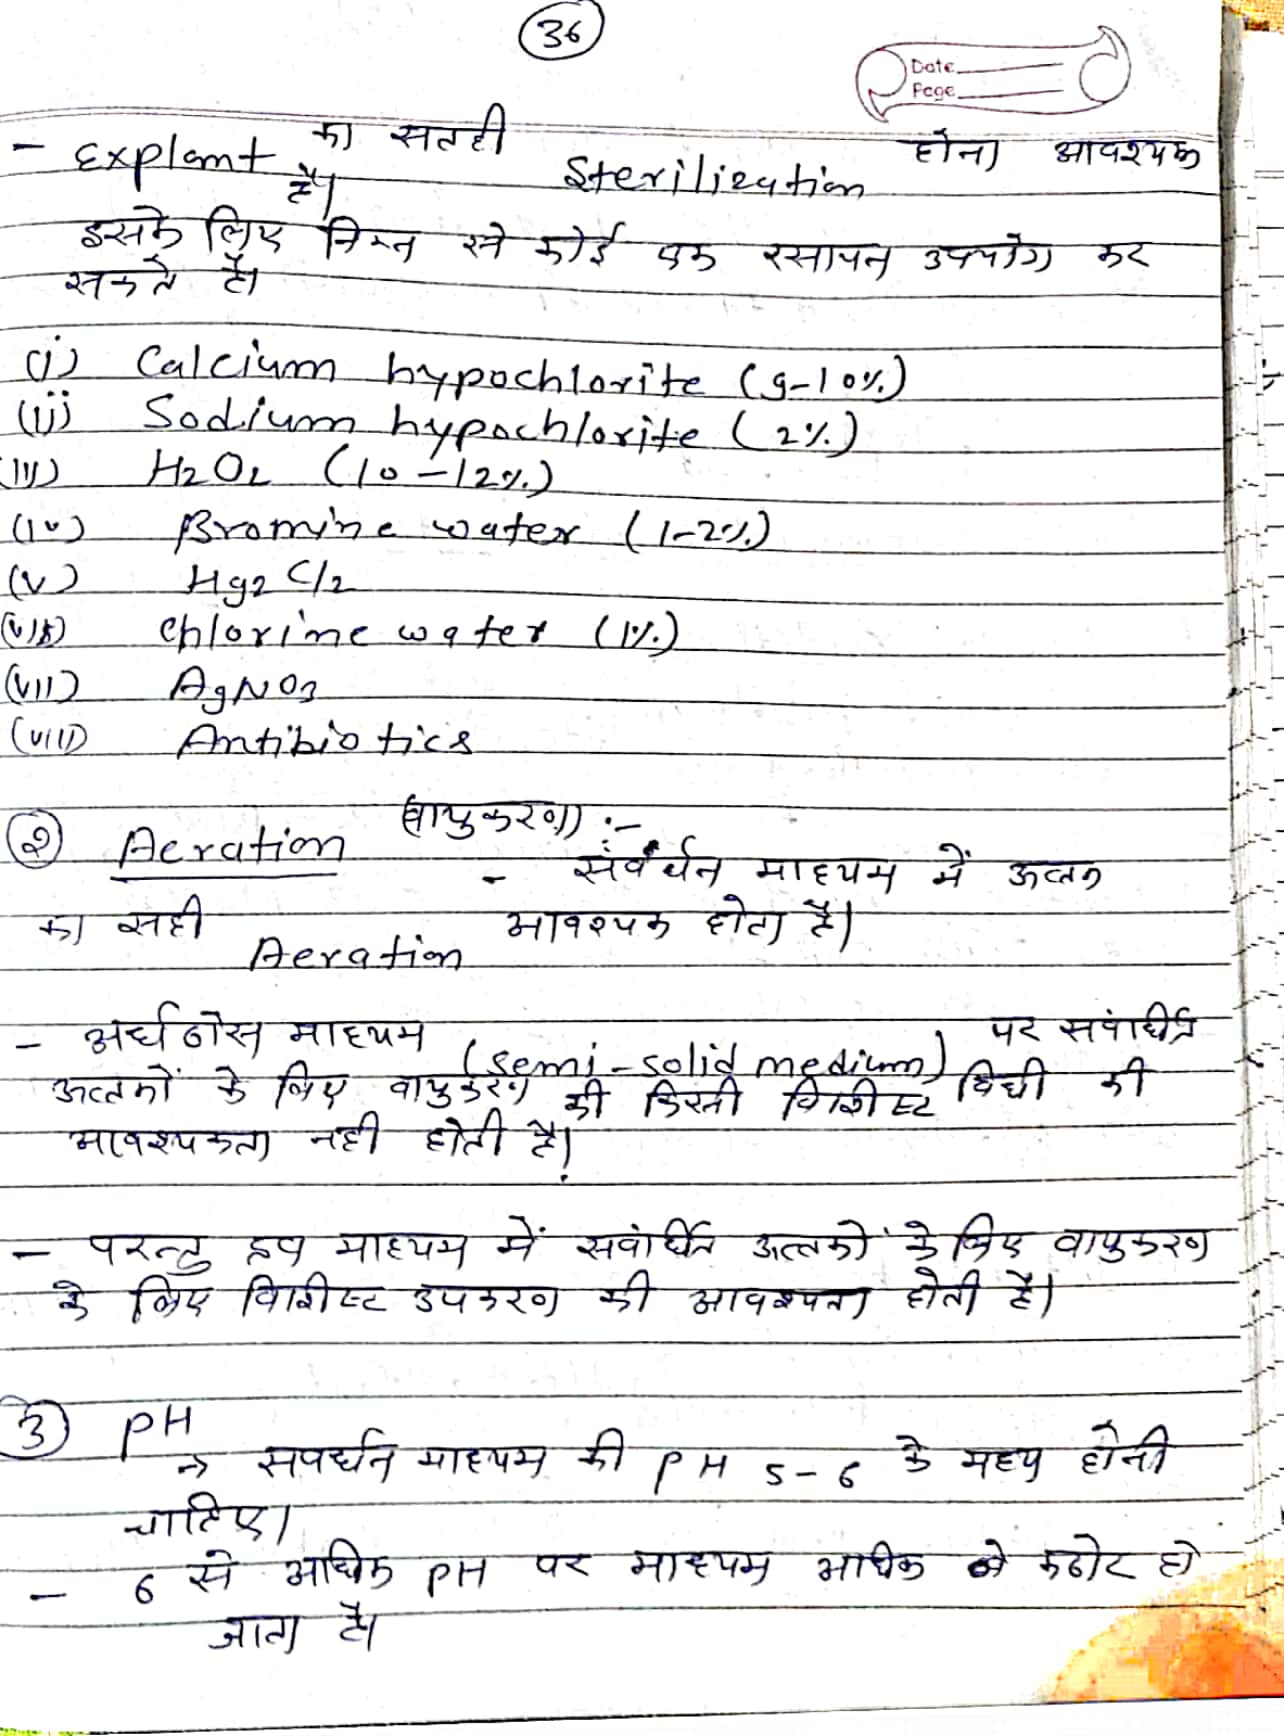 36
Date
Page
- Explant का सतही Sterilization होना आवश्यक
है।
इसके लिए निम्न से कोई एक रसायन उपयोग कर
सकते है।
(i) Calcium hypochlorite (9-10%)
(ii) Sodium hypochlorite (2%)
(iii) H2O2 (10-12%)
(iv) Bromine water (1-2%)
(v) Hg2Cl2
(vi) Chlorine water (1%)
(vii) AgNO3
(viii) Antibiotics
② Aeration (वायुकरण) :-
- संवर्धन माध्यम में ऊतक
का सही Aeration आवश्यक होता है।
- अर्धठोस माध्यम (semi-solid medium) पर सवंर्धित
ऊतकों के लिए वायुकरण की किसी विशिष्ट विधी की
आवश्यकता नही होती है।
- परन्तु द्रव माध्यम में सवंर्धित ऊतकों के लिए वायुकरण
के लिए विशिष्ट उपकरण की आवश्यता होती है।
③ PH
→ सवर्धन माध्यम की PH 5-6 के मध्य होनी
चाहिए।
- 6 से अधिक PH पर माध्यम अधिक कठोर हो
जाता है।